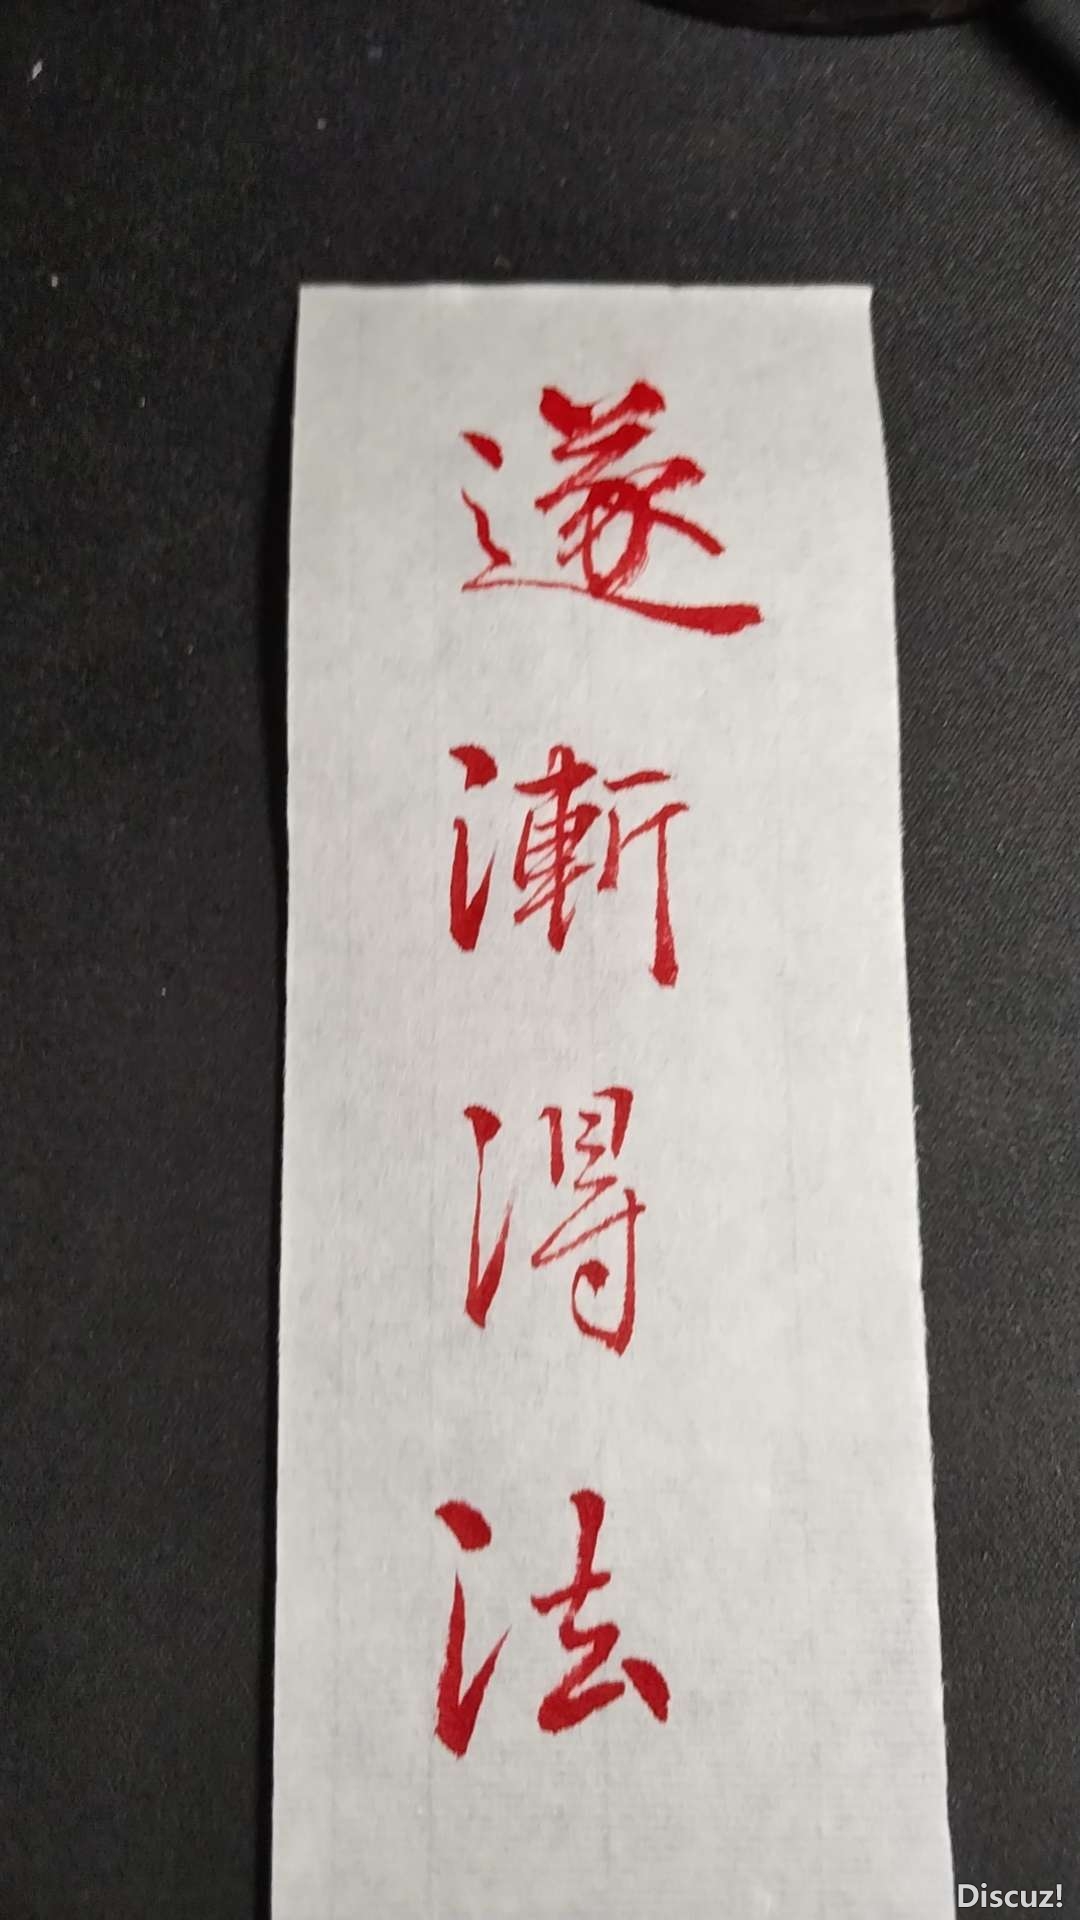 遂漸得法
Discuz!